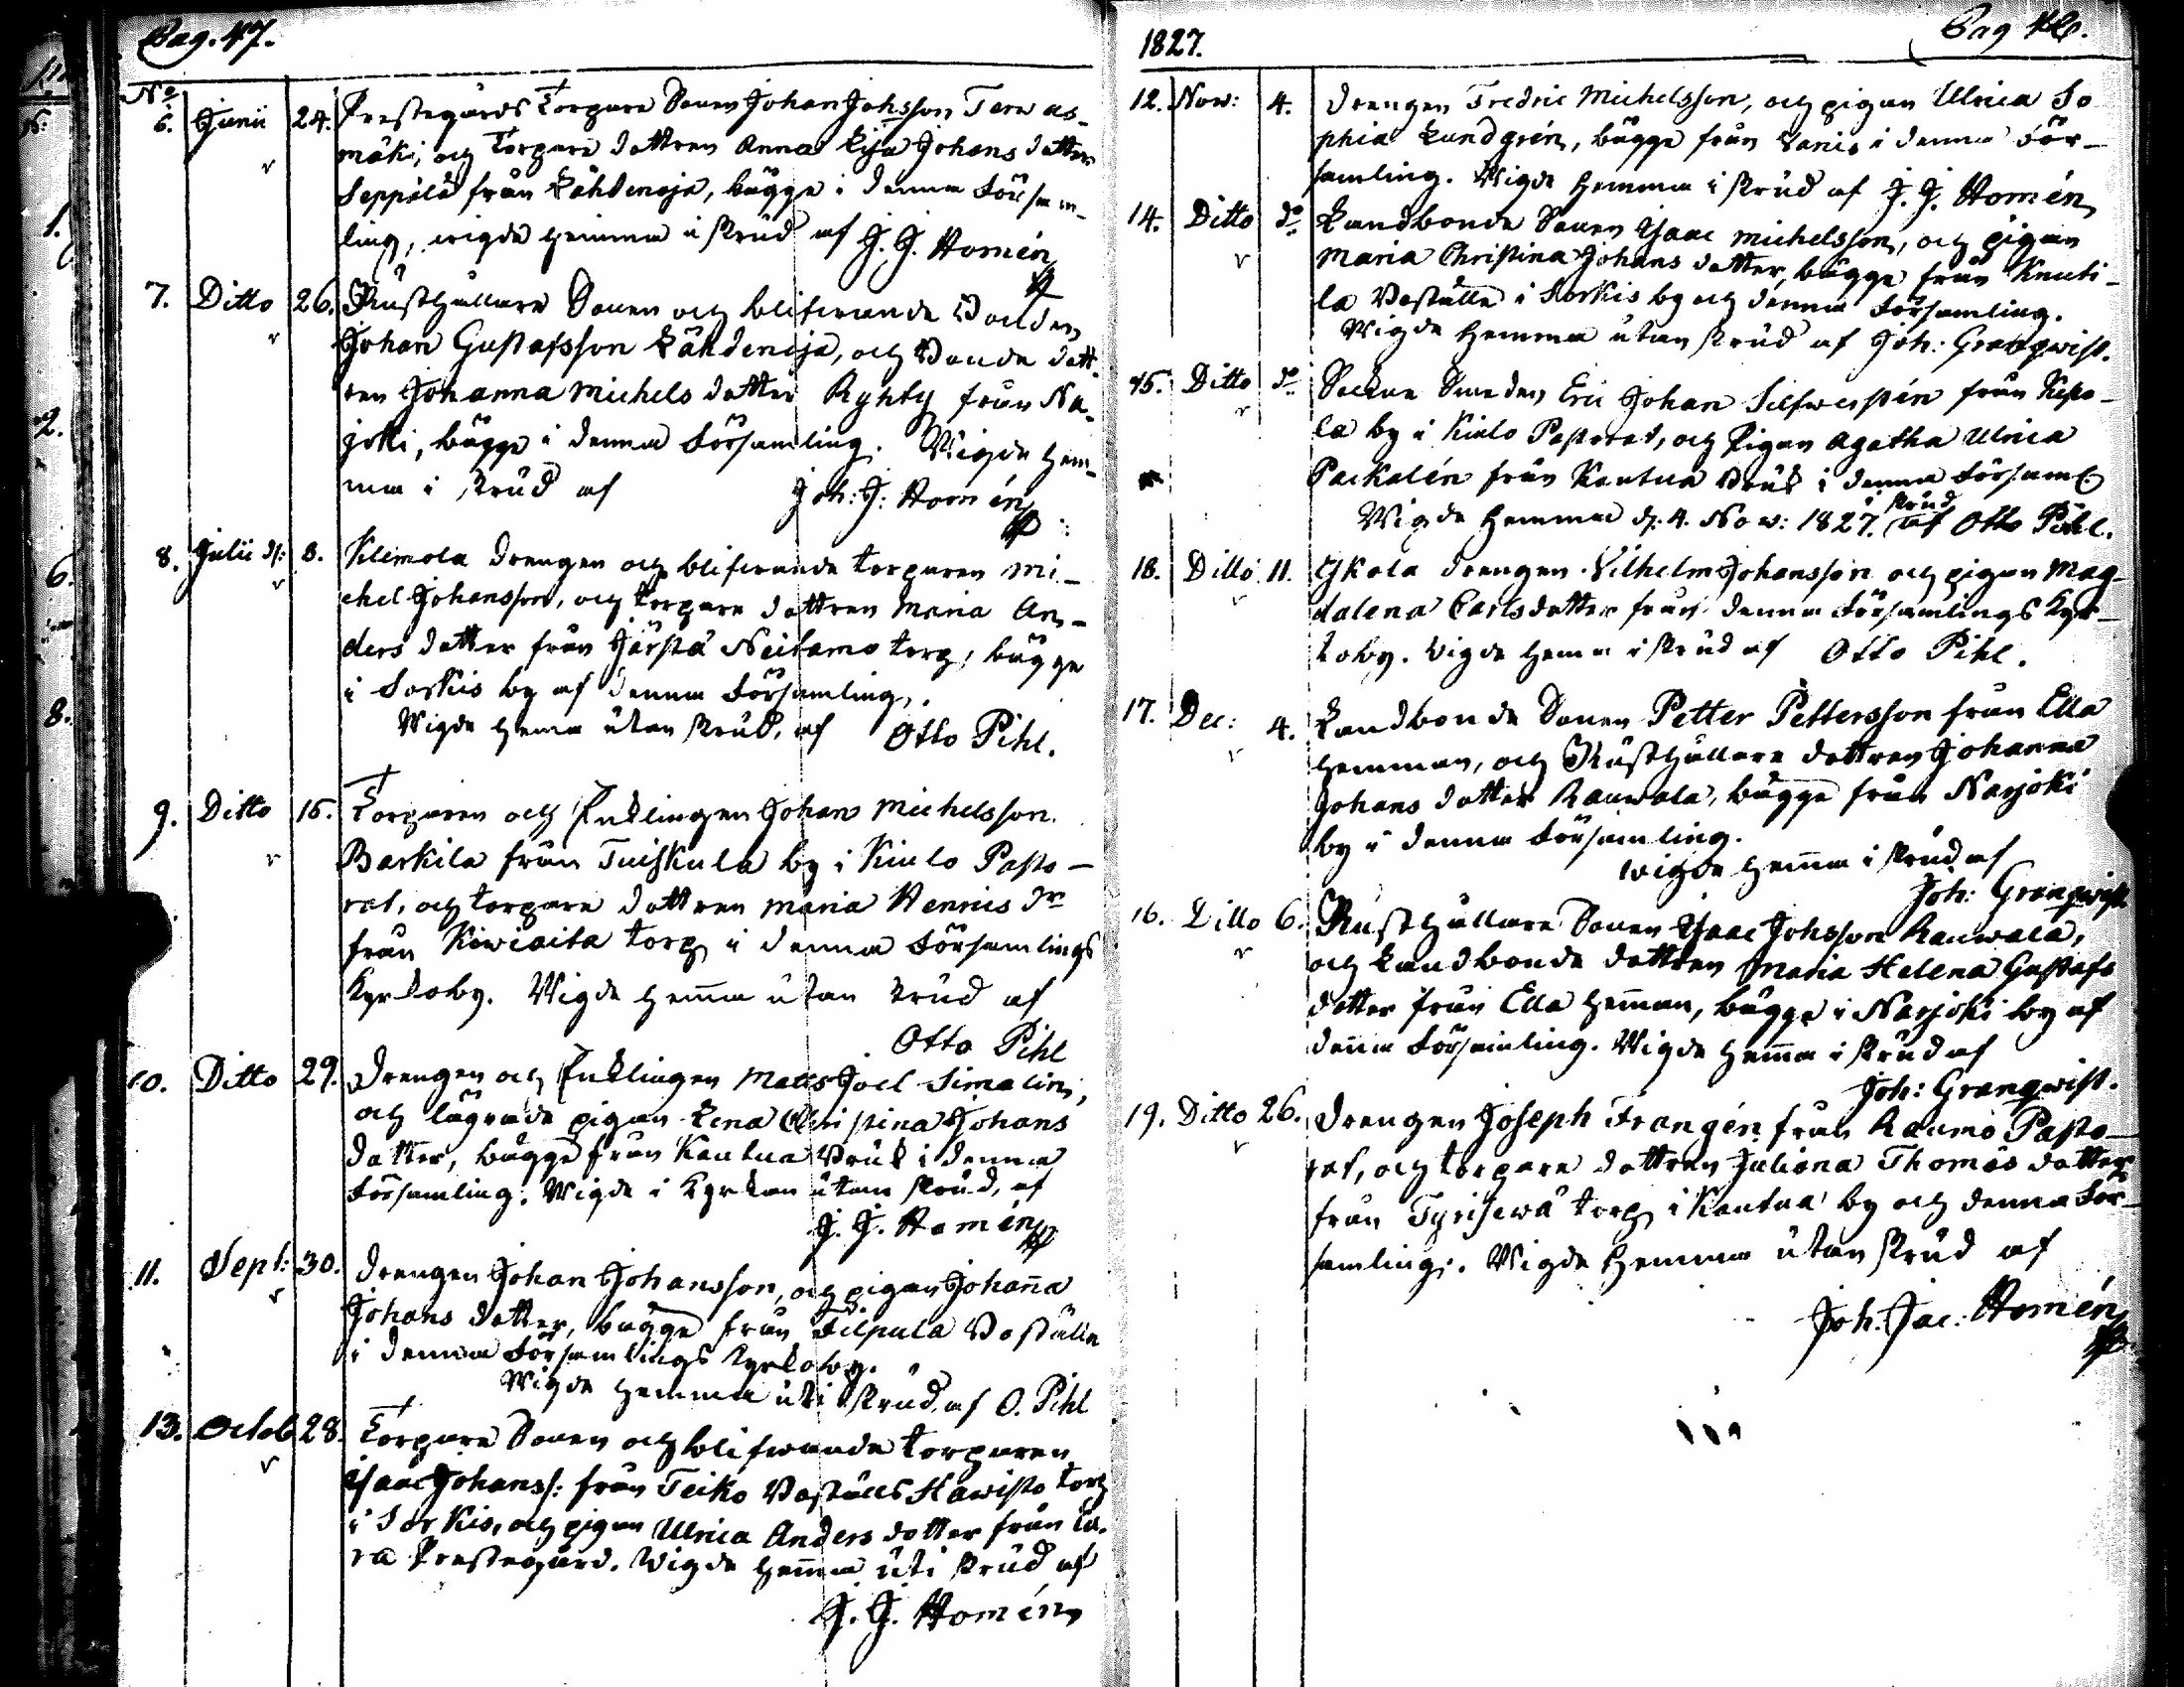 Pag. 47.
No
6. Junii 24. Prestegårds Torpare Sonen Johan Johsson Terwas-
mäki, och Torpare dottren Anna Lisa Johans dotter
Seppälä från Lähdenoja, bägge i denna Försam-
ling, wigde hemma i skrud af J. J. Homén
7. Ditto 26. Rusthållare Sonen och blifwande Bonden
Johan Gustafsson Lähdenoja, och Bonde dott-
ren Johanna Michels dotter Ryhty från Na-
joki, bägge i denna Församling. Wigde hem-
ma i skrud af Joh: J: Homén
8. Julii d: 8. Klemola drengen och blifwande torparen Mi-
chel Johansson, och torpare dottren Maria An-
ders dotter från Järstä Neitamo torp, bägge
i Sorkis by af denna Församling.
Wigde hema utan skrud, af Otto Pihl.
9. Ditto 15. Torparen och Enklingen Johan Michelsson
Barkila från Tuiskula by i Kiulo Pasto-
rat, och torpare dottren Maria Henrics dr
från Kiwiaita torp i denna Församlings
Kyrkoby. Wigde hemma utan skrud af
Otto Pihl
10. Ditto 29. Drengen och Enklingen Matts Joel Simalin,
och lägrade pigan Lena Christina Johans
dotter, bägge från Kautua Bruk i denna
Församling. Wigde i Kyrkan utan skrud, af
J. J. Homén
11. Sept: 30. Drengen Johan Johansson, och pigan Johanna
Johans dotter, bägge från Filpula Boställe
i denna Församlings Kyrkoby.
Wigde hemma uti skrud, af O. Pihl
13. Octob 28. Torpare Sonen och blifwande torparen
Isaac Johanss: från Teiko Boställs Hawisto torp
i Sorkis, och pigan Ulrica Anders dotter från Eu-
ra Prestegård. Wigde hemma uti skrud af
J. J. Homén
1827. Pag 48.
12. Now: 4. Drengen Fredric Michelsson, och pigan Ulrica So
phia Lundgrén, bägge från Lanis i denna För-
samling. Wigde hemma i skrud af J. J. Homén
14. Ditto do Landbonde Sonen Isaac Michelsson, och pigan
Maria Christina Johans dotter, bägge från Knuti-
la Boställe i Sorkis by och denna Församling.
Wigde hemma utan skrud af Joh: Granqwist.
15. Ditto do Sockne Smeden Eric Johan Silfwerstén från Kepo-
la by i Kiulo Pastorat, och Pigan Agatha Ulrica
Packalén från Kautua Bruk i denna Församl
Wigde hemma d: 4. Now: 1827. i skrud af Otto Pihl.
18. Ditto 11. Yskola drengen Wilhelm Johansson och pigan Mag-
dalena Carls dotter från denna Församlings Kyr-
koby. Wigde hema i skrud af Otto Pihl.
17. Dec: 4. Landbonde Sonen Petter Pettersson från Ella
hemman, och Rusthållare dottren Johanna
Johans dotter Rauwola, bägge från Narjoki
by i denna Församling.
wigde hemma i skrud af
Joh: Granqwist
16. Ditto 6. Rusthållare Sonen Isaac Johsson Rauwala,
och Landbonde dottren Maria Helena Gustafs
dotter från Ella heman, bägge i Narjoki by af
denna Församling. Wigde hemma i skrud af
Joh: Granqwist.
19. Ditto 26. Drengen Joseph Frangén från Raumo Pasto-
rat, och torpare dottren Juliana Thomas dotter
från Tyrisewä torp i Kautua by och denna För-
samling. Wigde hemma utan skrud af
Joh. Jac: Homén